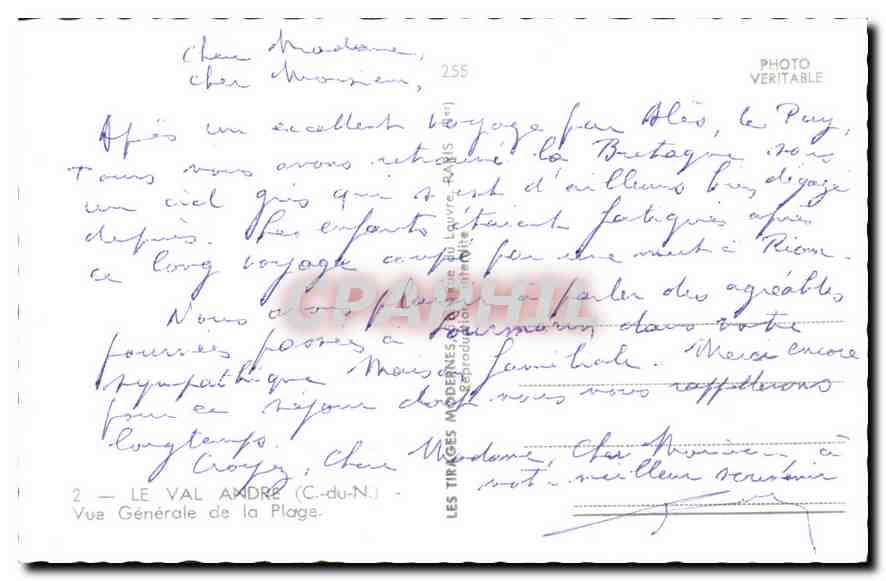 Chère Madame,
cher Monsieur,
255
PHOTO
VERITABLE
Après un excellent voyage par Alès, le Puy,
Tours nous avons retrouvé la Bretagne sous
un ciel gris qui s'est d'ailleurs bien dégagé
depuis. Les enfants étaient fatigués après
ce long voyage coupé par une nuit à Riom.
Nous avons plaisir à parler des agréables
journées passées à Lourmarin dans votre
sympathique Maison familiale. Merci encore
pour ce séjour dont nous nous rappellerons
longtemps.
Croyez, Chère Madame, Cher Monsieur à
notre meilleur souvenir
2 — LE VAL ANDRE (C.-du-N.) -
Vue Générale de la Plage.
LES TIRAGES MODERNES, du Louvre, PARIS (1er)
Reproduction interdite
CPAPHIL